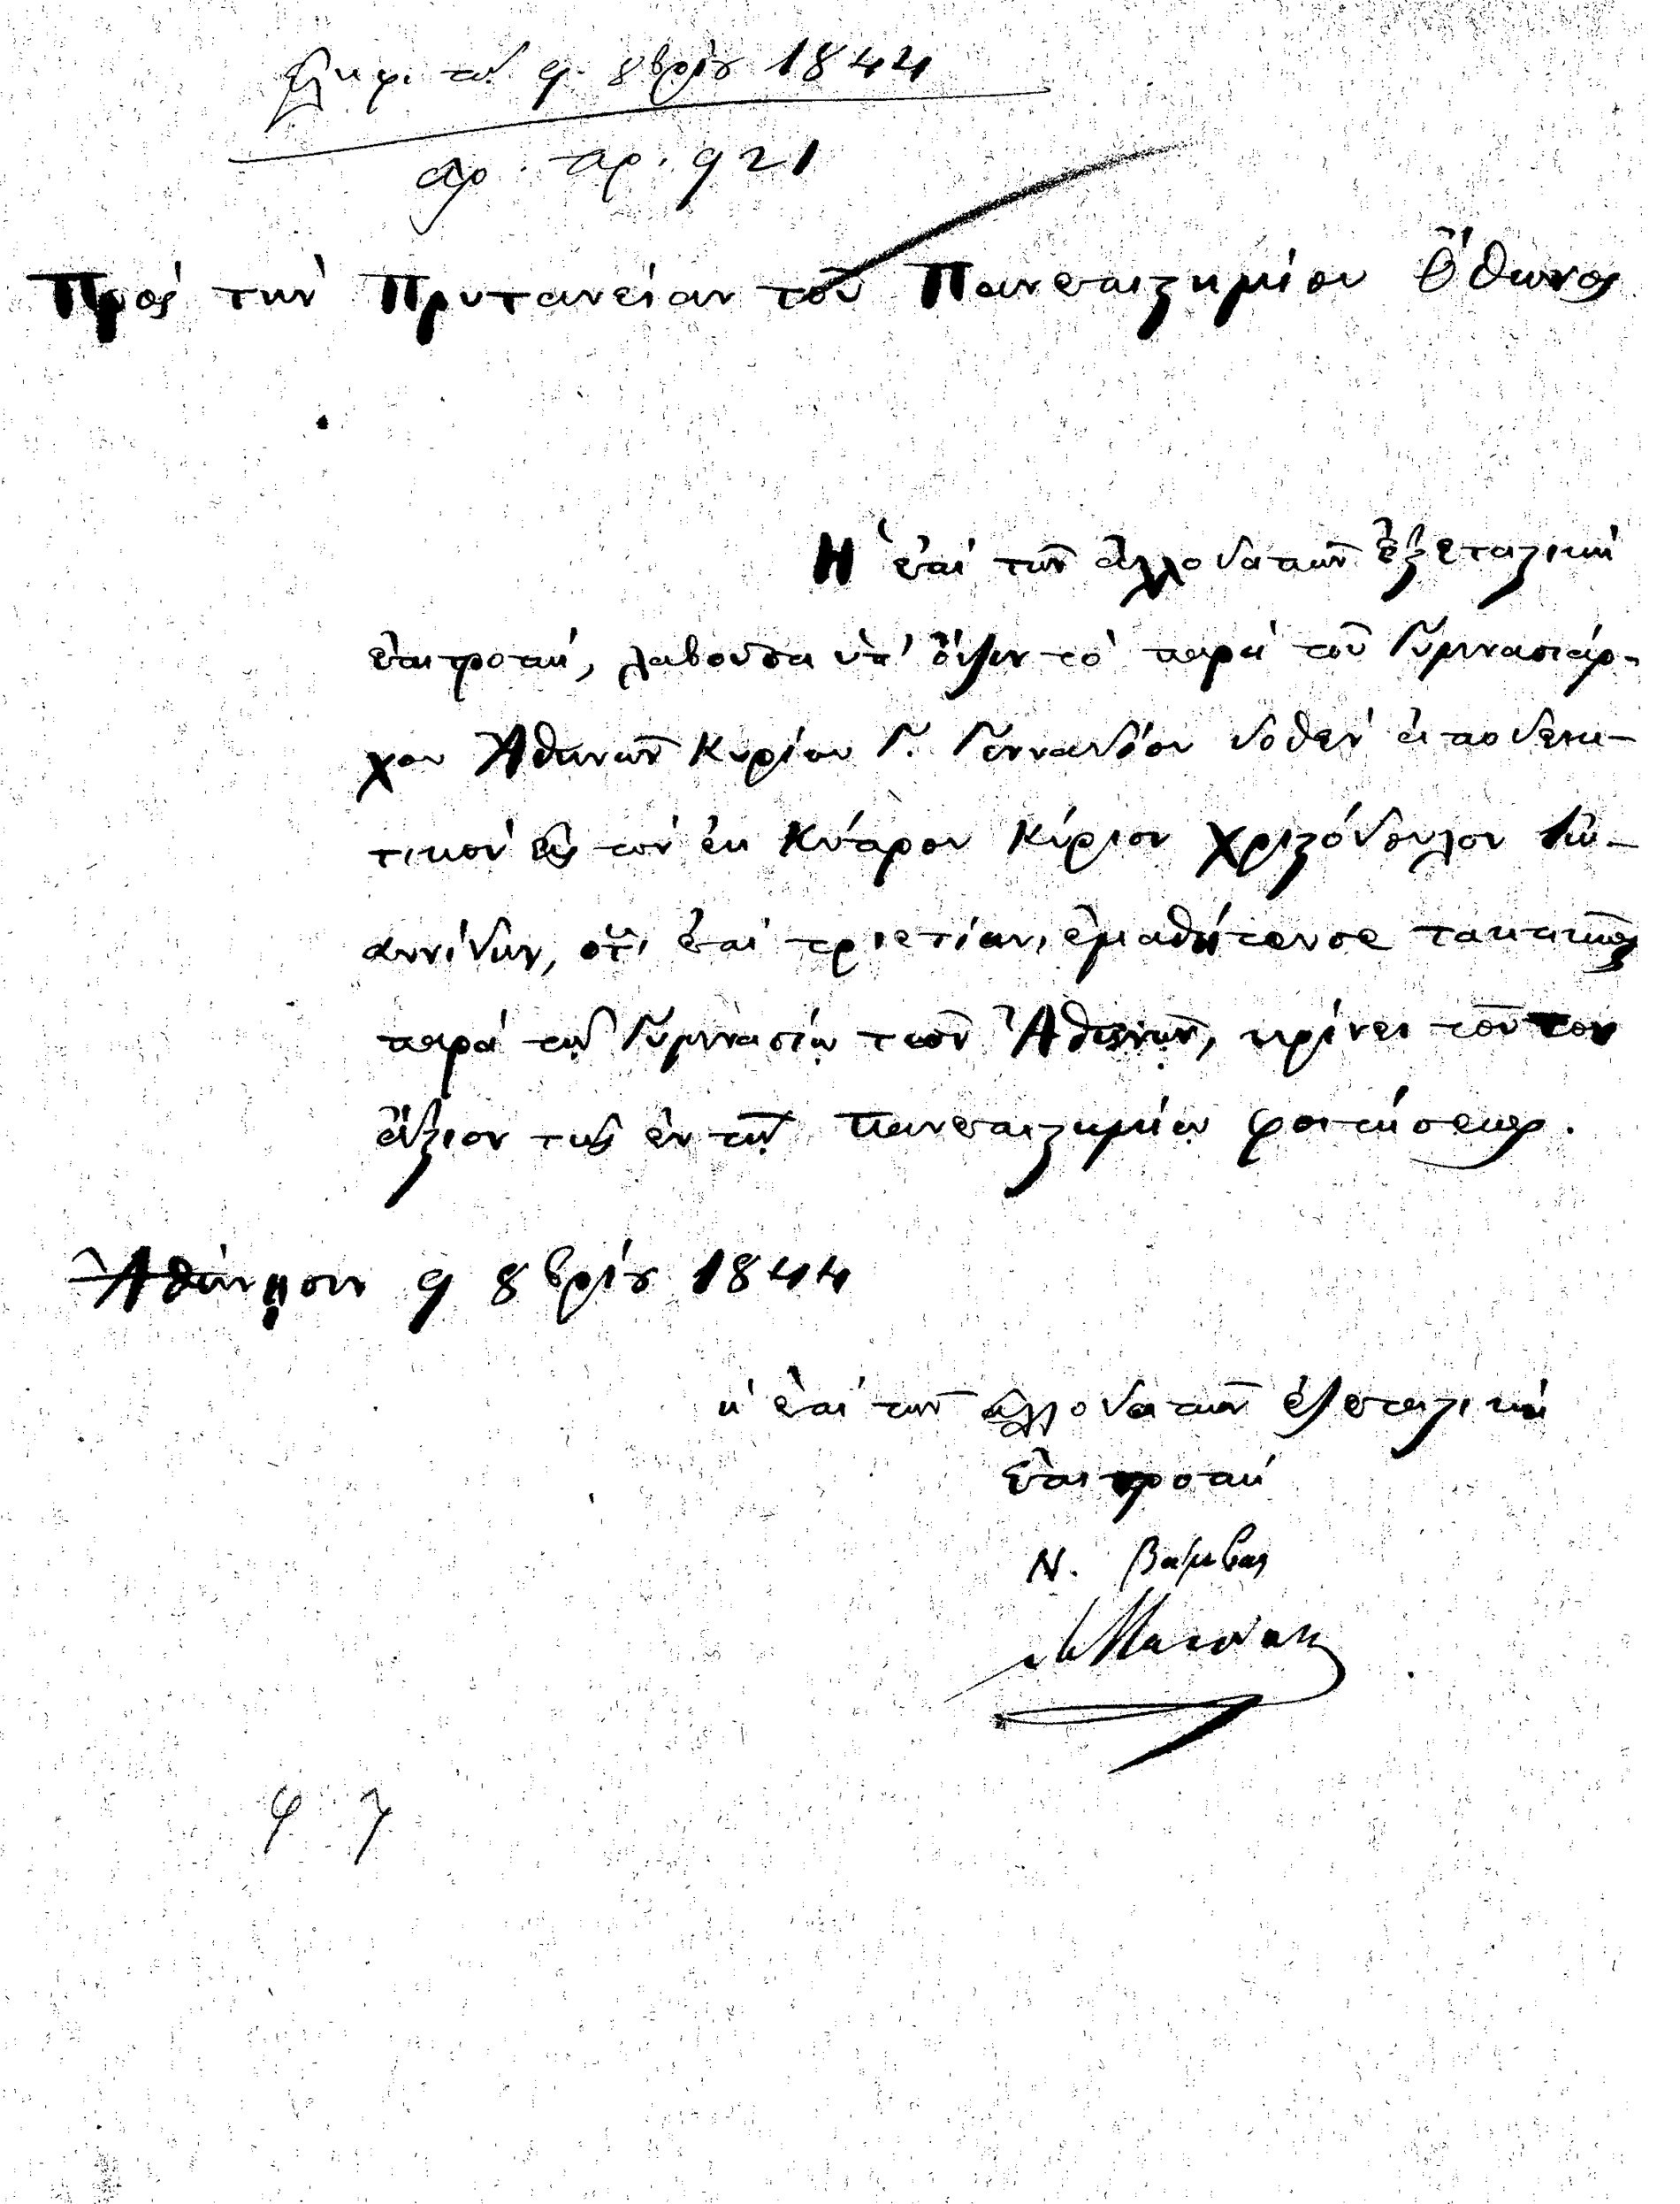 Ἐλήφ. τῇ 9. 8βρίου 1844
ἀρ. πρ. 921
Πρὸς τὴν Πρυτανείαν τοῦ Πανεπιστημίου Ὄθωνος
Ἡ ἐπὶ τῶν ἀλλοδαπῶν ἐξεταστικὴ
ἐπιτροπή, λαβοῦσα ὑπ' ὄψιν τὸ παρὰ τοῦ Γυμνασιάρ-
χου Ἀθηνῶν Κυρίου Γ. Γενναδίου δοθὲν ἀποδεικ-
τικὸν εἰς τὸν ἐκ Κύπρου Κύριον Χριστόδουλον Ἰω-
αννίδην, ὅτι ἐπὶ τριετίαν ἐμαθήτευσε τακτικῶς
παρὰ τῷ Γυμνασίῳ τῶν Ἀθηνῶν, κρίνει τοῦτον
ἄξιον τῆς ἐν τῷ Πανεπιστημίῳ φοιτήσεως.
Ἀθήνῃσιν 9 8βρίου 1844
ἡ ἐπὶ τῶν ἀλλοδαπῶν ἐξεταστικὴ
ἐπιτροπή
Ν. Βάμβας
φ 7